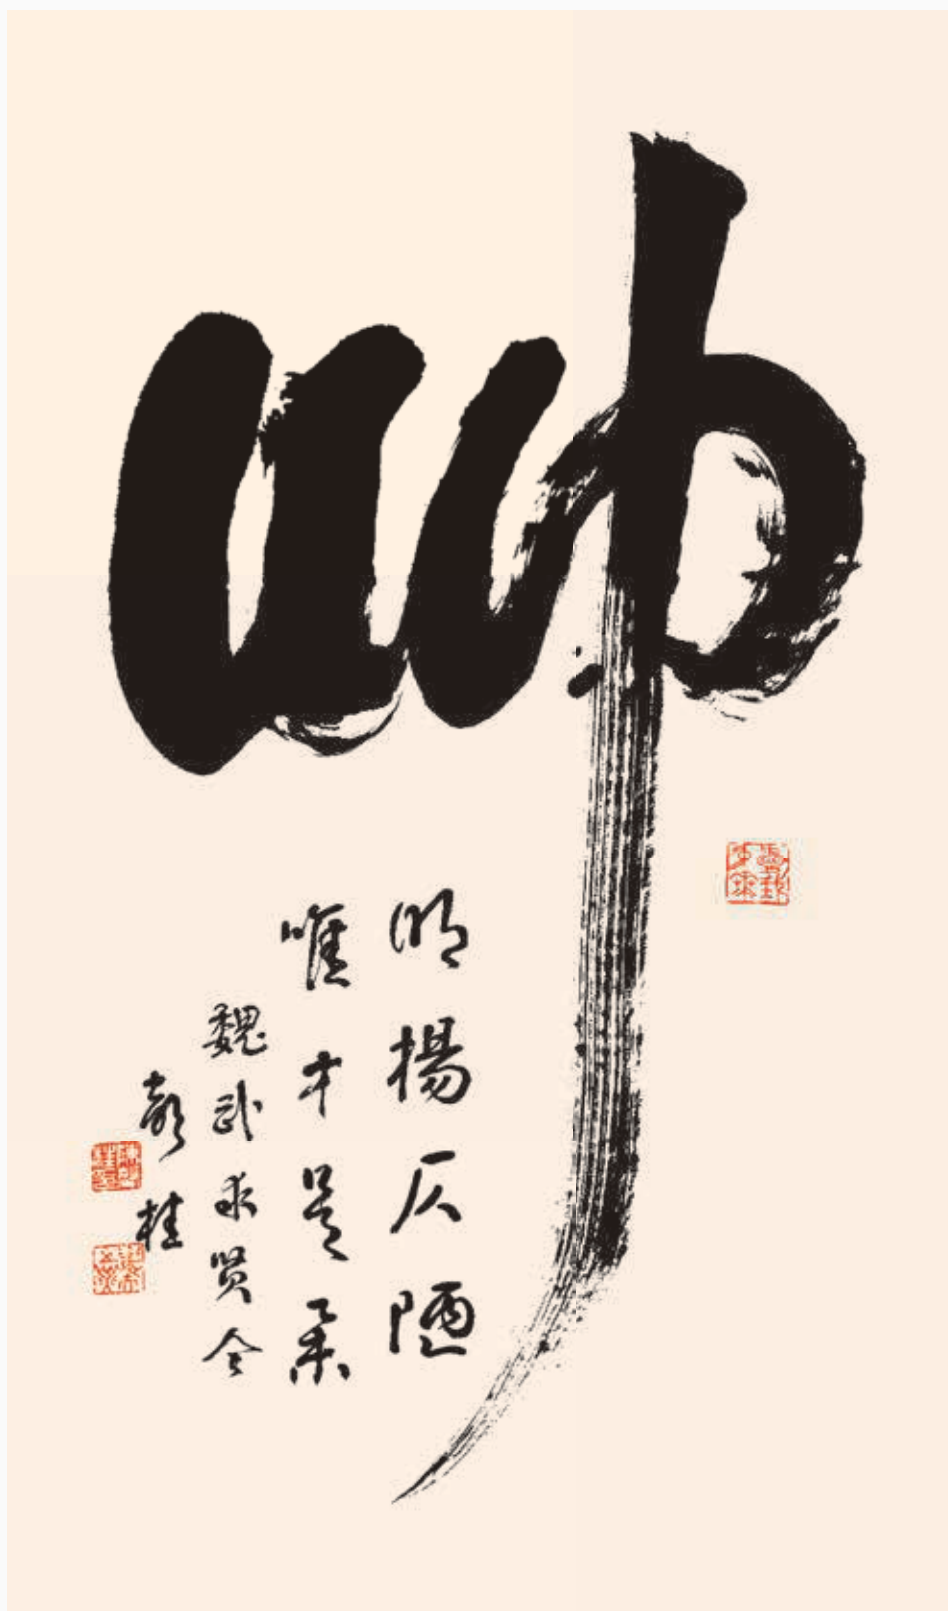 帅
明揚仄陋
唯才是举
魏武求贤令
彭桂